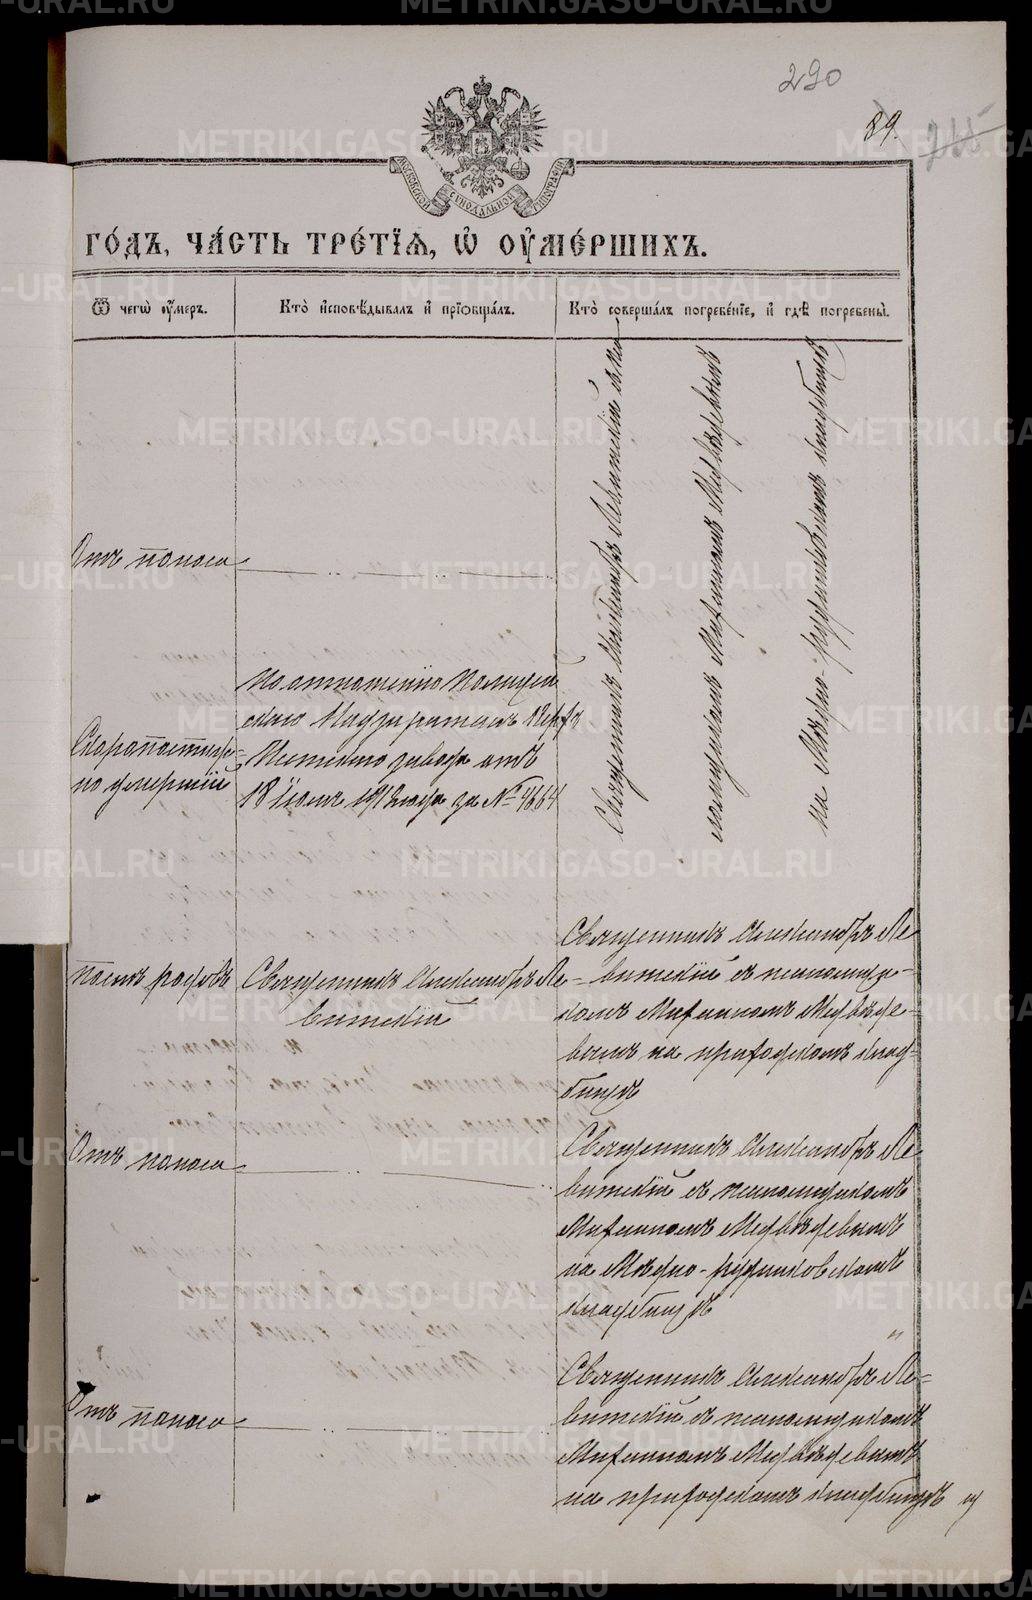 290
89.
МОСКОВСКОЙ СѴНОДАЛЬНОЙ ТИПОГРАФІИ
ГО́ДЪ, ЧА́СТЬ ТРЕ́ТІѦ, Ѡ҆ ОУ҆МЕ́РШИХЪ.
Ѿ чегѡ̀ оу҆́меръ.
Кто̀ и҆сповѣ́дывалъ и҆ прїѻбща́лъ.
Кто̀ соверша́лъ погребе́нїе, и҆ гдѣ̀ погребены̀.
Отъ поноса
Священникъ Александръ Левитскій съ
псаломщикомъ Михаиломъ Медвѣдевымъ
на Мѣдно-рудниковскомъ кладбищѣ
Скоропостиж-
но умершій
По отношенію Полицей
скаго Надзирателя
завода отъ
18 Іюля 1913 года за № 4664
Послѣ родовъ
Священникъ Александръ Ле-
витскій
Священникъ Александръ Ле
витскій съ псаломщи-
комъ Михаиломъ Медвѣде-
вымъ на приходскомъ клад-
бищѣ
Отъ поноса
Священникъ Александръ Ле
витскій съ псаломщикомъ
Михаиломъ Медвѣдевымъ
на Мѣдно-рудниковскомъ
кладбищѣ
Отъ поноса
Священникъ Александръ Ле-
витскій съ псаломщикомъ
Михаиломъ Медвѣдевымъ
на приходскомъ кладбищѣ
METRIKI.GASO-URAL.RU